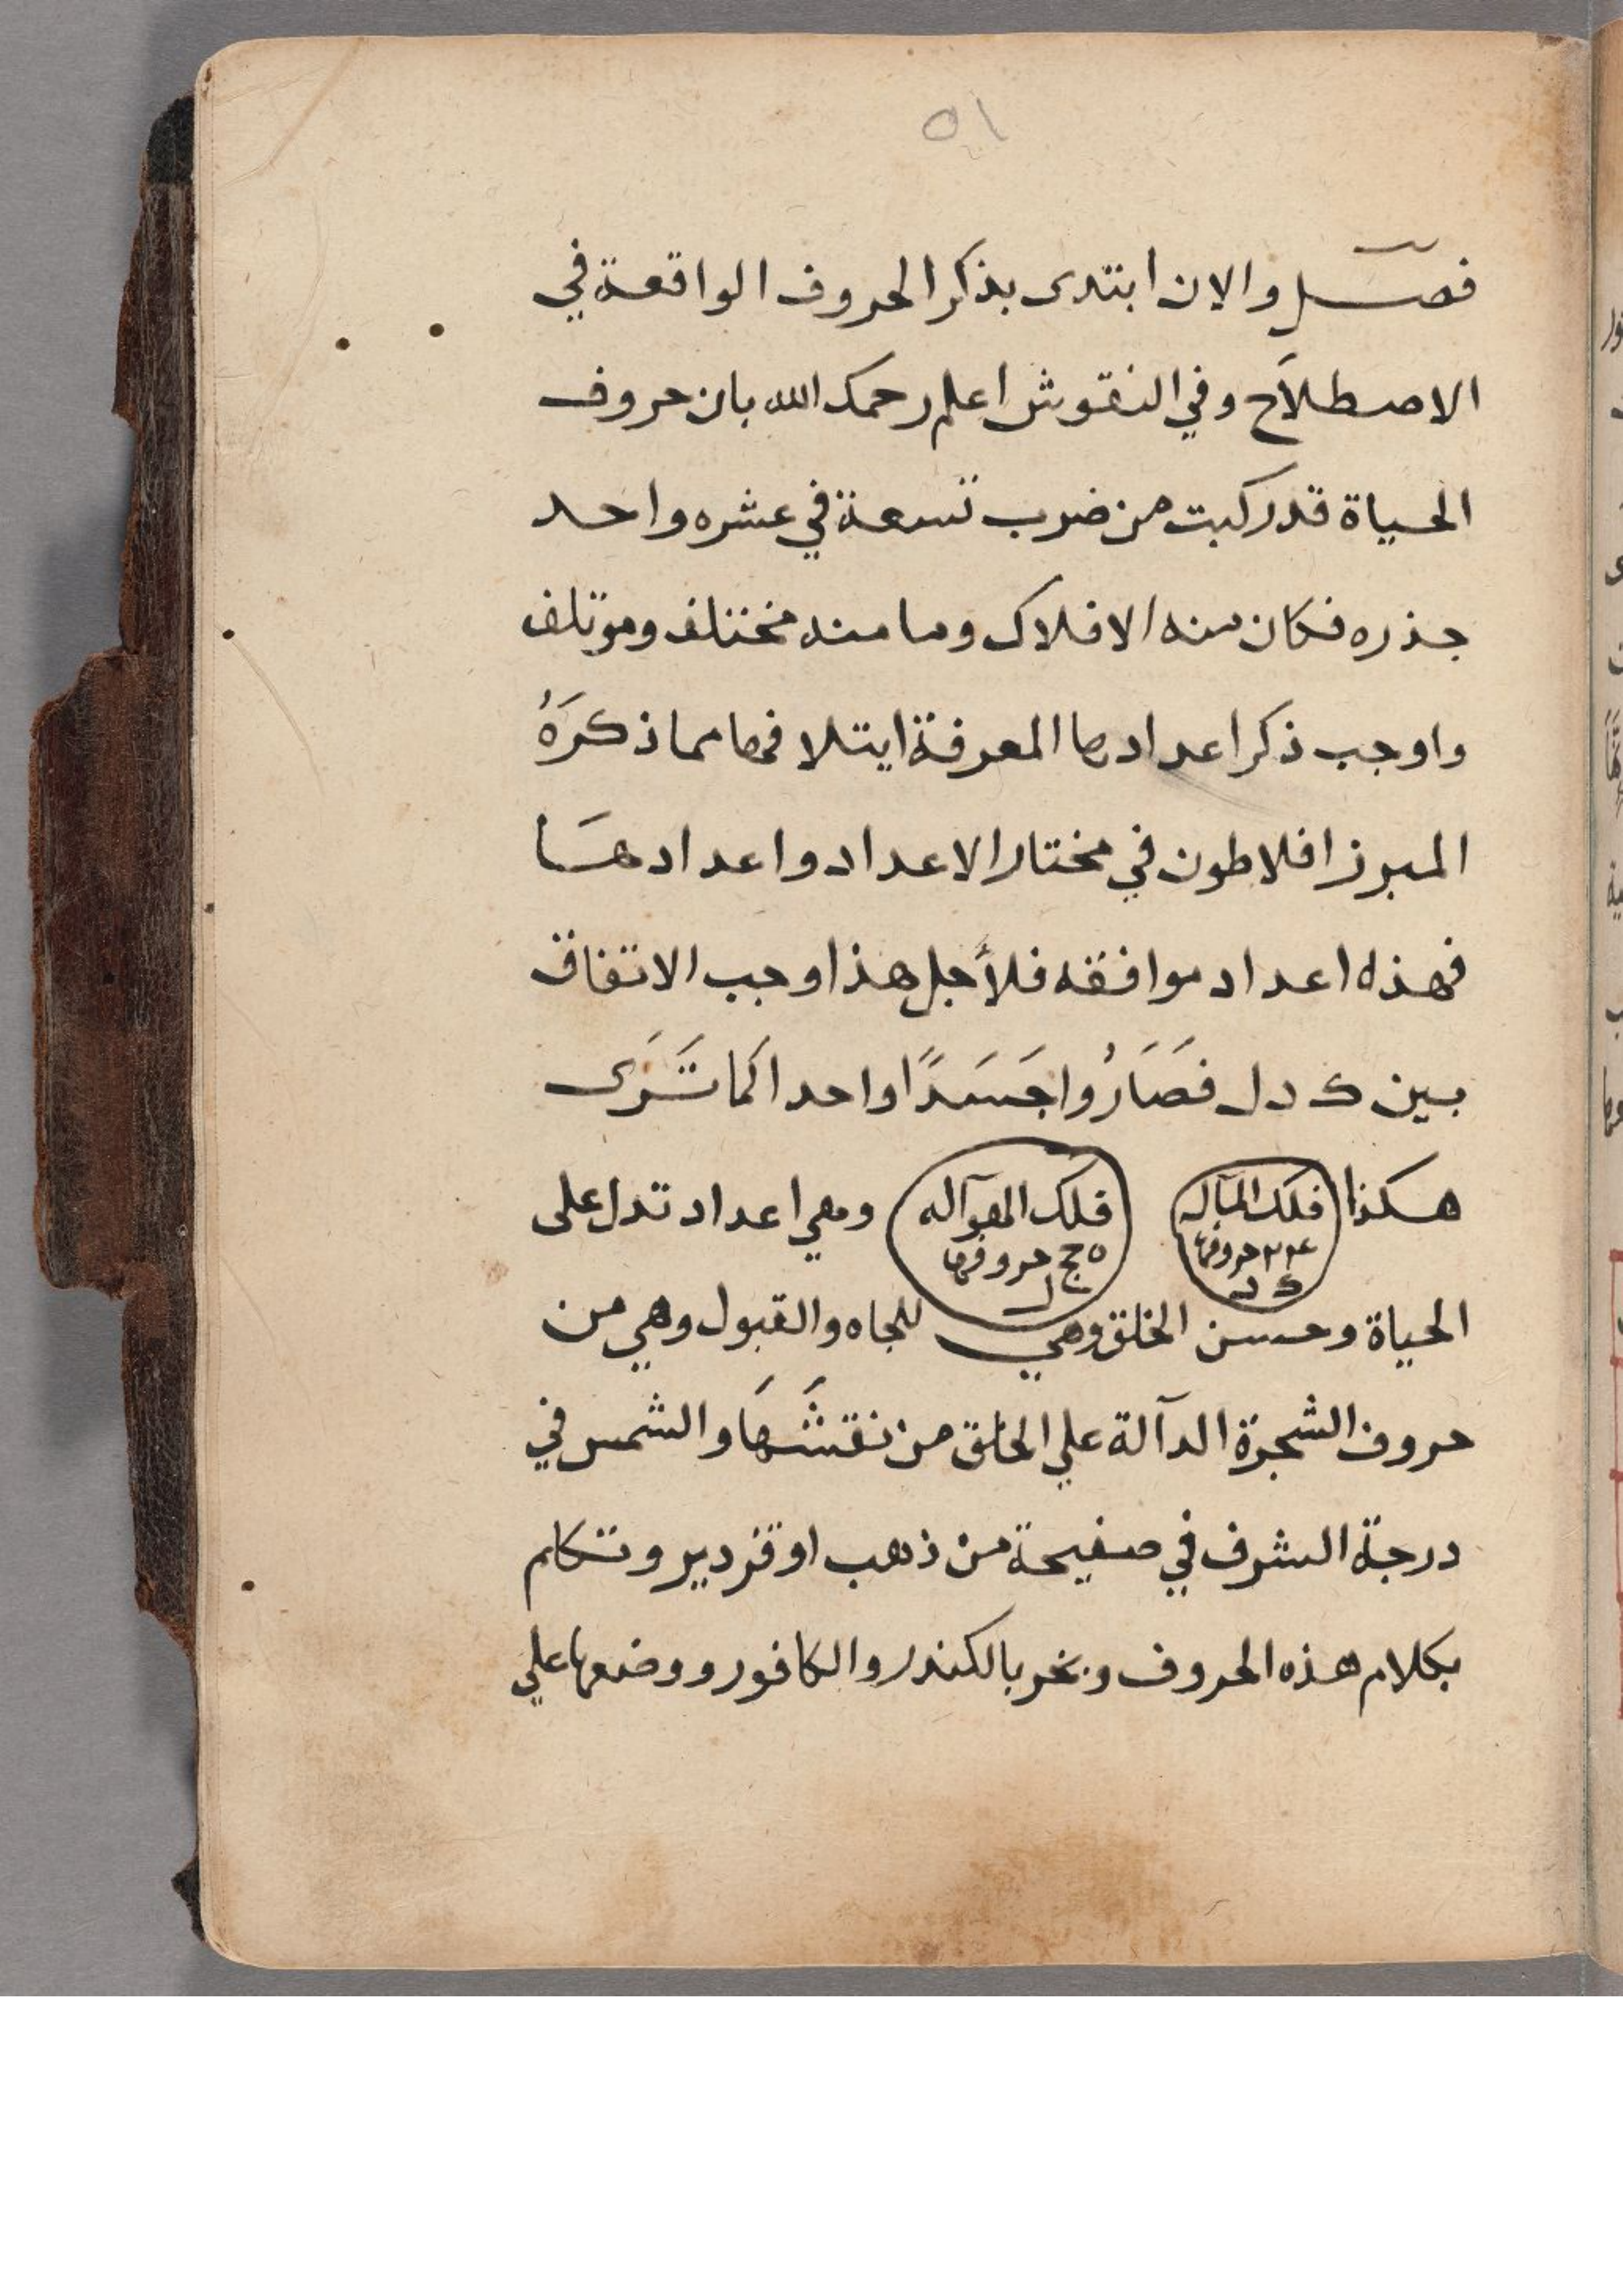 ٥١
فصل والان ابتدى بذكر الحروف الواقعة في
الاصطلاح وفي النقوش اعلم رحمك الله بان حروف
الحياة قد ركبت من ضرب تسعة في عشره واحد
جذره فكان منه الافلاك وما منه مختلف وموتلف
واوجب ذكر اعدادها المعرفة ايتلافها مما ذكرَهُ
المبرز افلاطون في مختار الاعداد واعدادهَا
فهذه اعداد موافقه فلأجل هذا اوجب الاتفاق
بين ك د ل فصَارُوا جَسَدًا واحدا كما تَرَى
هكذا فلك المآله وهي اعداد تدل على
حروفها
ك د
فلك الهوآله
حروفها
ل
الحياة وحسن الخلق وهي للجاه والقبول وهي من
حروف الشجرة الدآلة علي الخلق من نقشَهَا والشمس في
درجة الشرف في صفيحة من ذهب او قزدير وتكلم
بكلام هذه الحروف وبخر بالكندر والكافور ووضعها علي